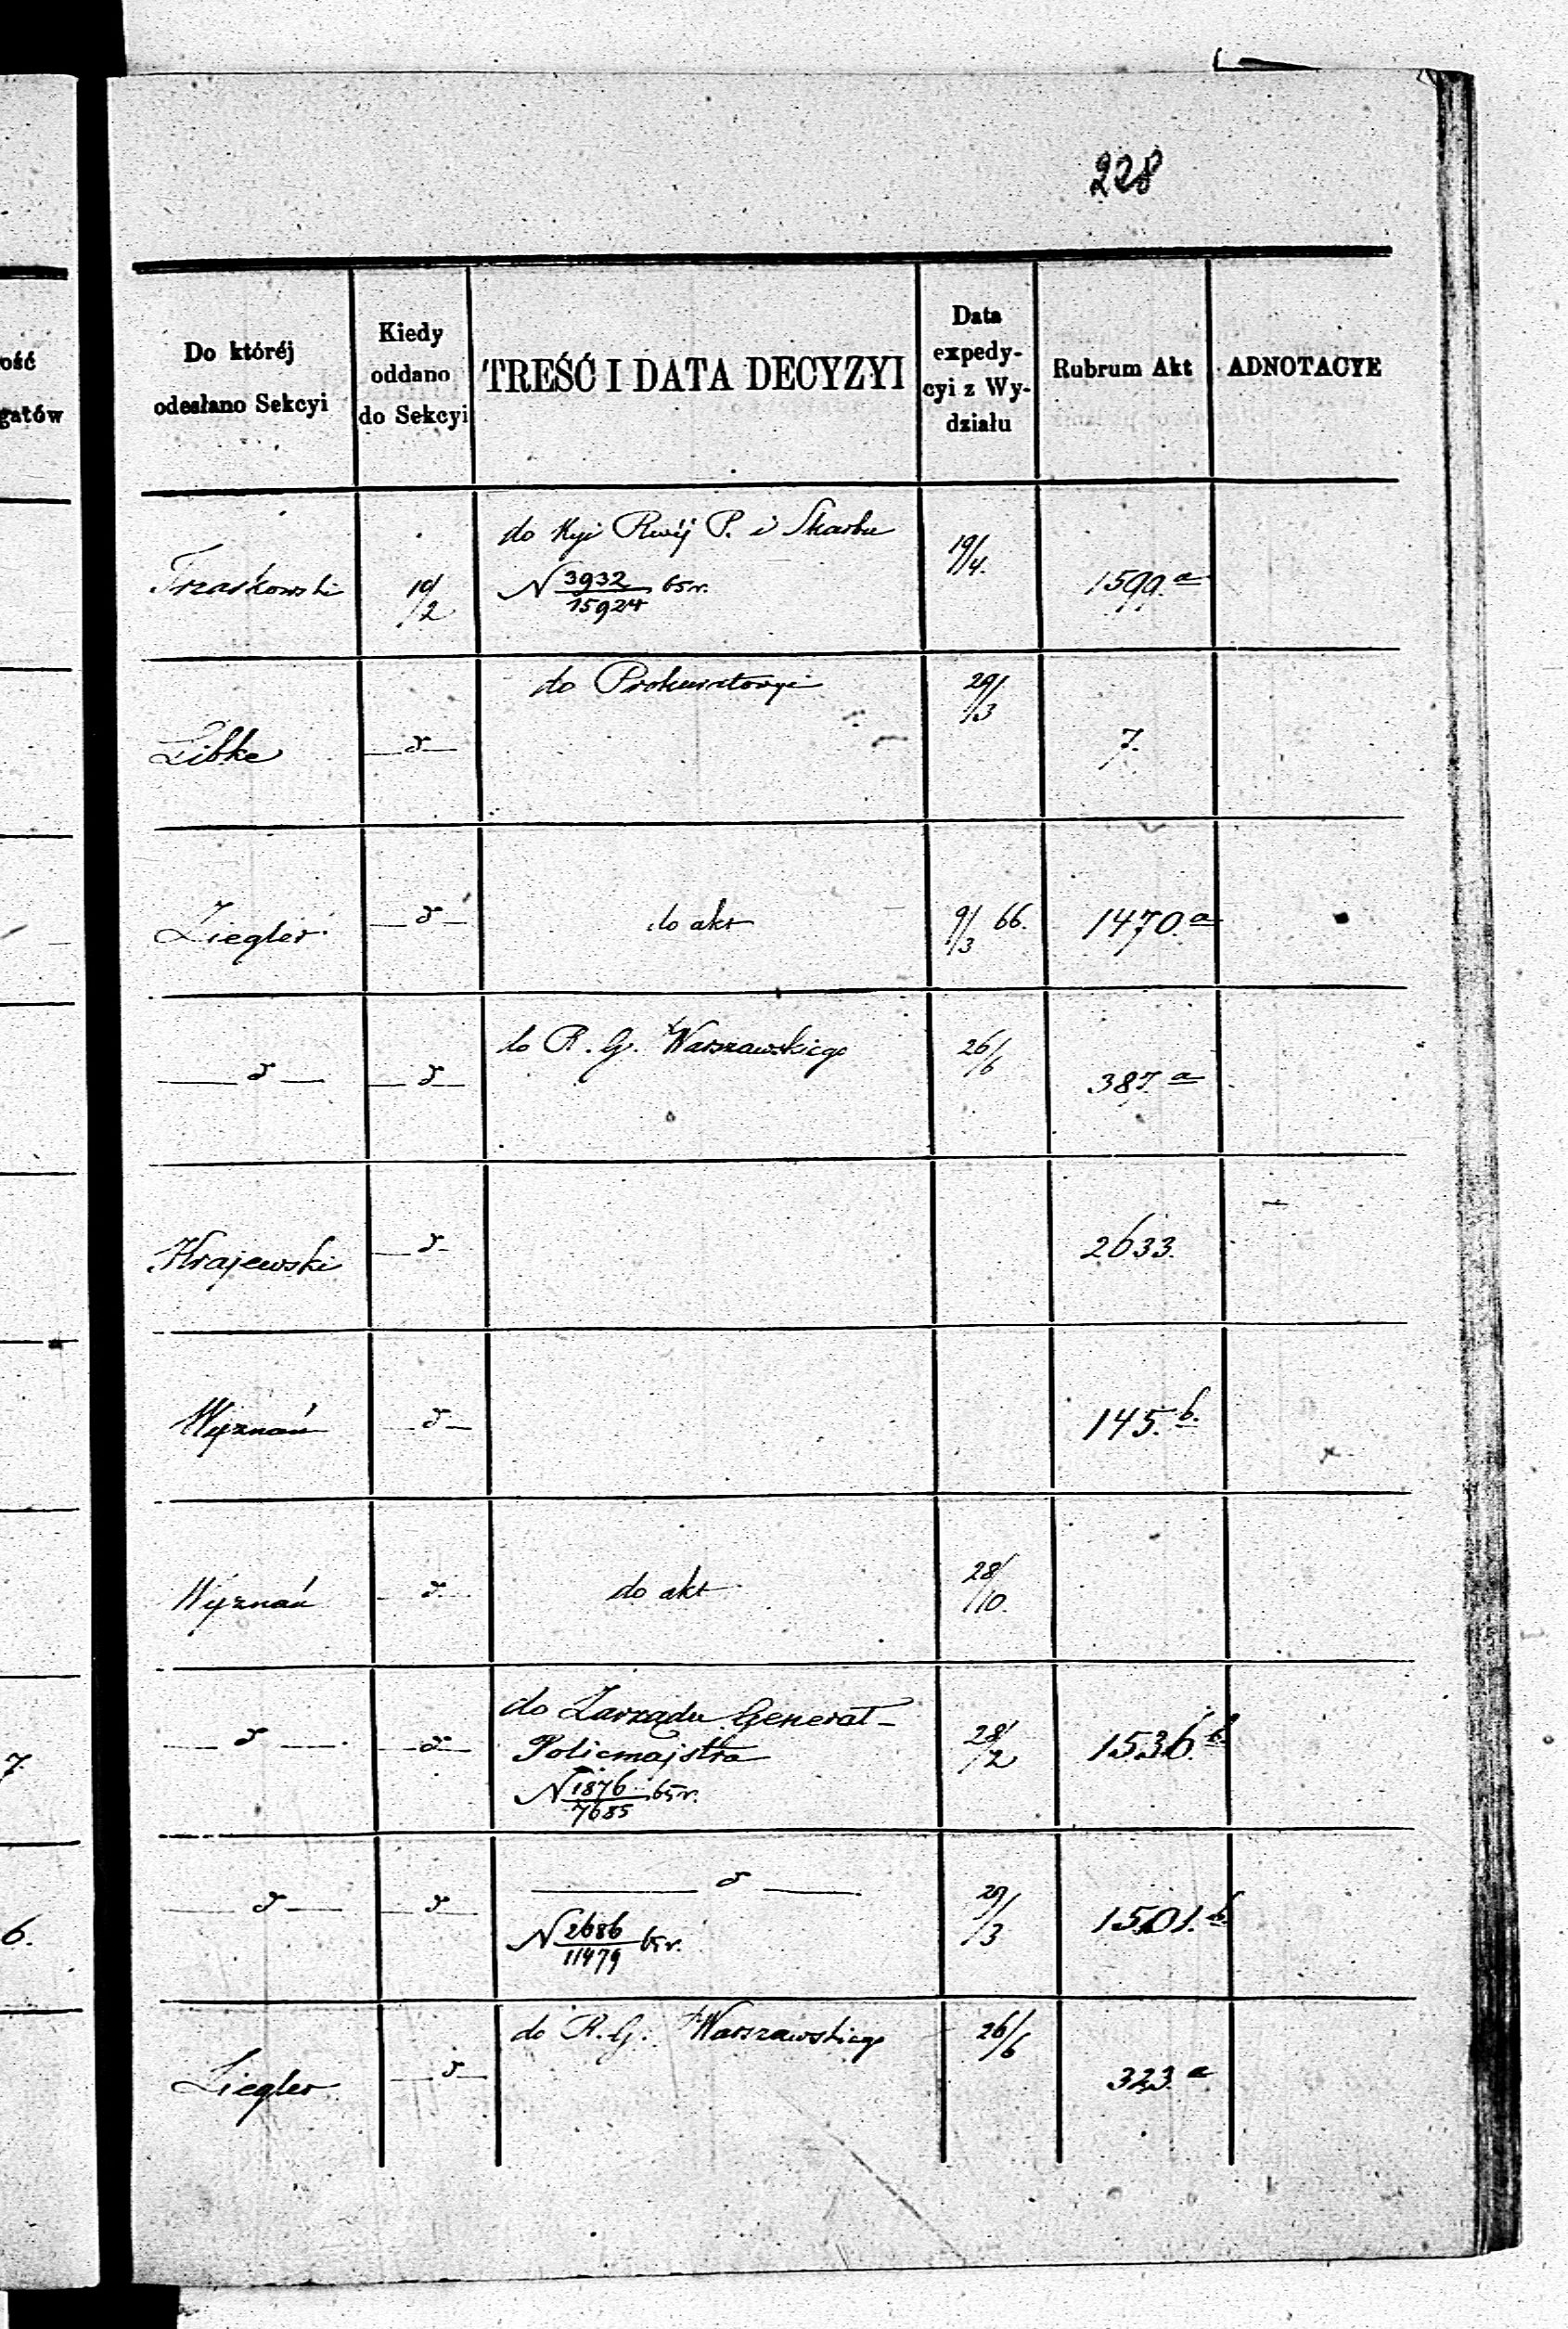 228
ość
gatów
Do któréj
odesłano Sekcyi
Kiedy
oddano
do Sekcyi
TREŚĆ I DATA DECYZYI
Data
expedy-
cyi z Wy-
działu
Rubrum Akt
ADNOTACYE
Trzaskowski 19/2 do Kyi Rwéj P. i Skarbu 19/4. 1599.a
N 3932/15924 65 r.
Libke — d — do Prokuratoryi 29/3 7.
Ziegler — d — do akt 9/3 66. 1470.a
— d — — d — do R. G. Warszawskiego 26/6 387.a
Krajewski — d — 2633.
Wyznań — d — 145.b.
Wyznań — d — do akt 28/10.
— d — — d — do Zarządu Generał-
Policmajstra 28/2 1536.b.
N 1876/7685 65 r.
7.
— d — — d — — d — 29/3 1501.b.
N 2686/11479 65 r.
6.
Ziegler — d — do R. G. Warszawskiego 26/6 323.a